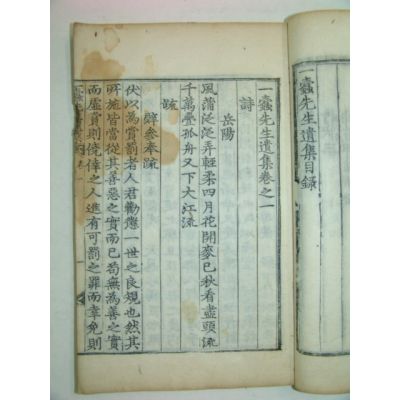 一蠹先生遺集目錄
一蠹先生遺集卷之一
詩
岳陽
風蒲泛泛弄輕柔四月花開麥已秋看盡頭流
千萬疊孤舟又下大江流
疏
辭參奉疏
伏以為賞罰者人君勸懲一世之良規也然其
所施皆當從其善惡之實而已苟無為善之實
而虛賞則僥倖之人進有可罰之罪而幸免則